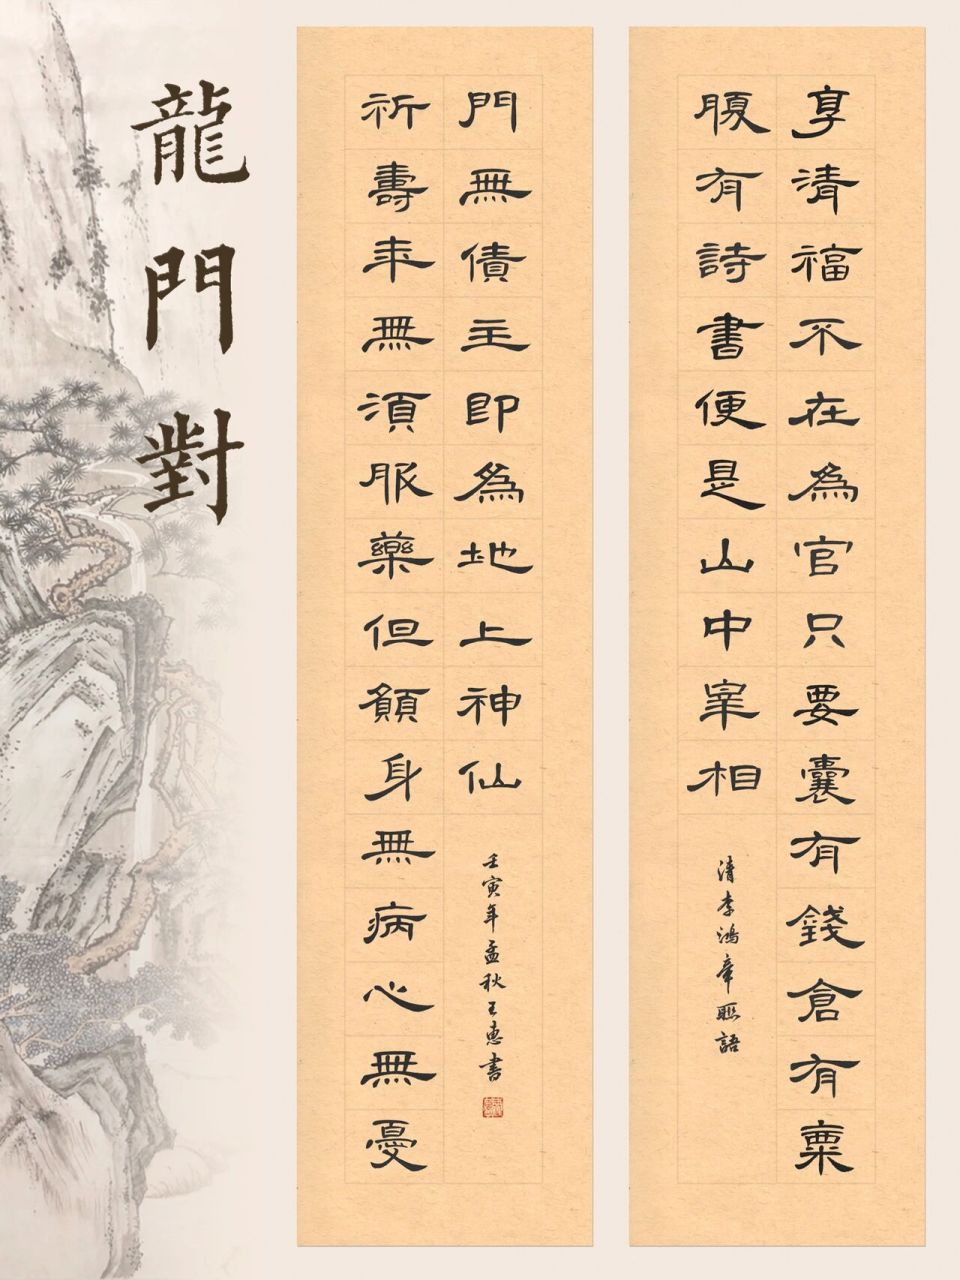 龍門對
享清福不在為官只要囊有錢倉有粟
腹有詩書便是山中宰相
清李鴻章聯語
祈壽年無須服藥但願身無病心無憂
門無債主即為地上神仙
壬寅年孟秋王惠書